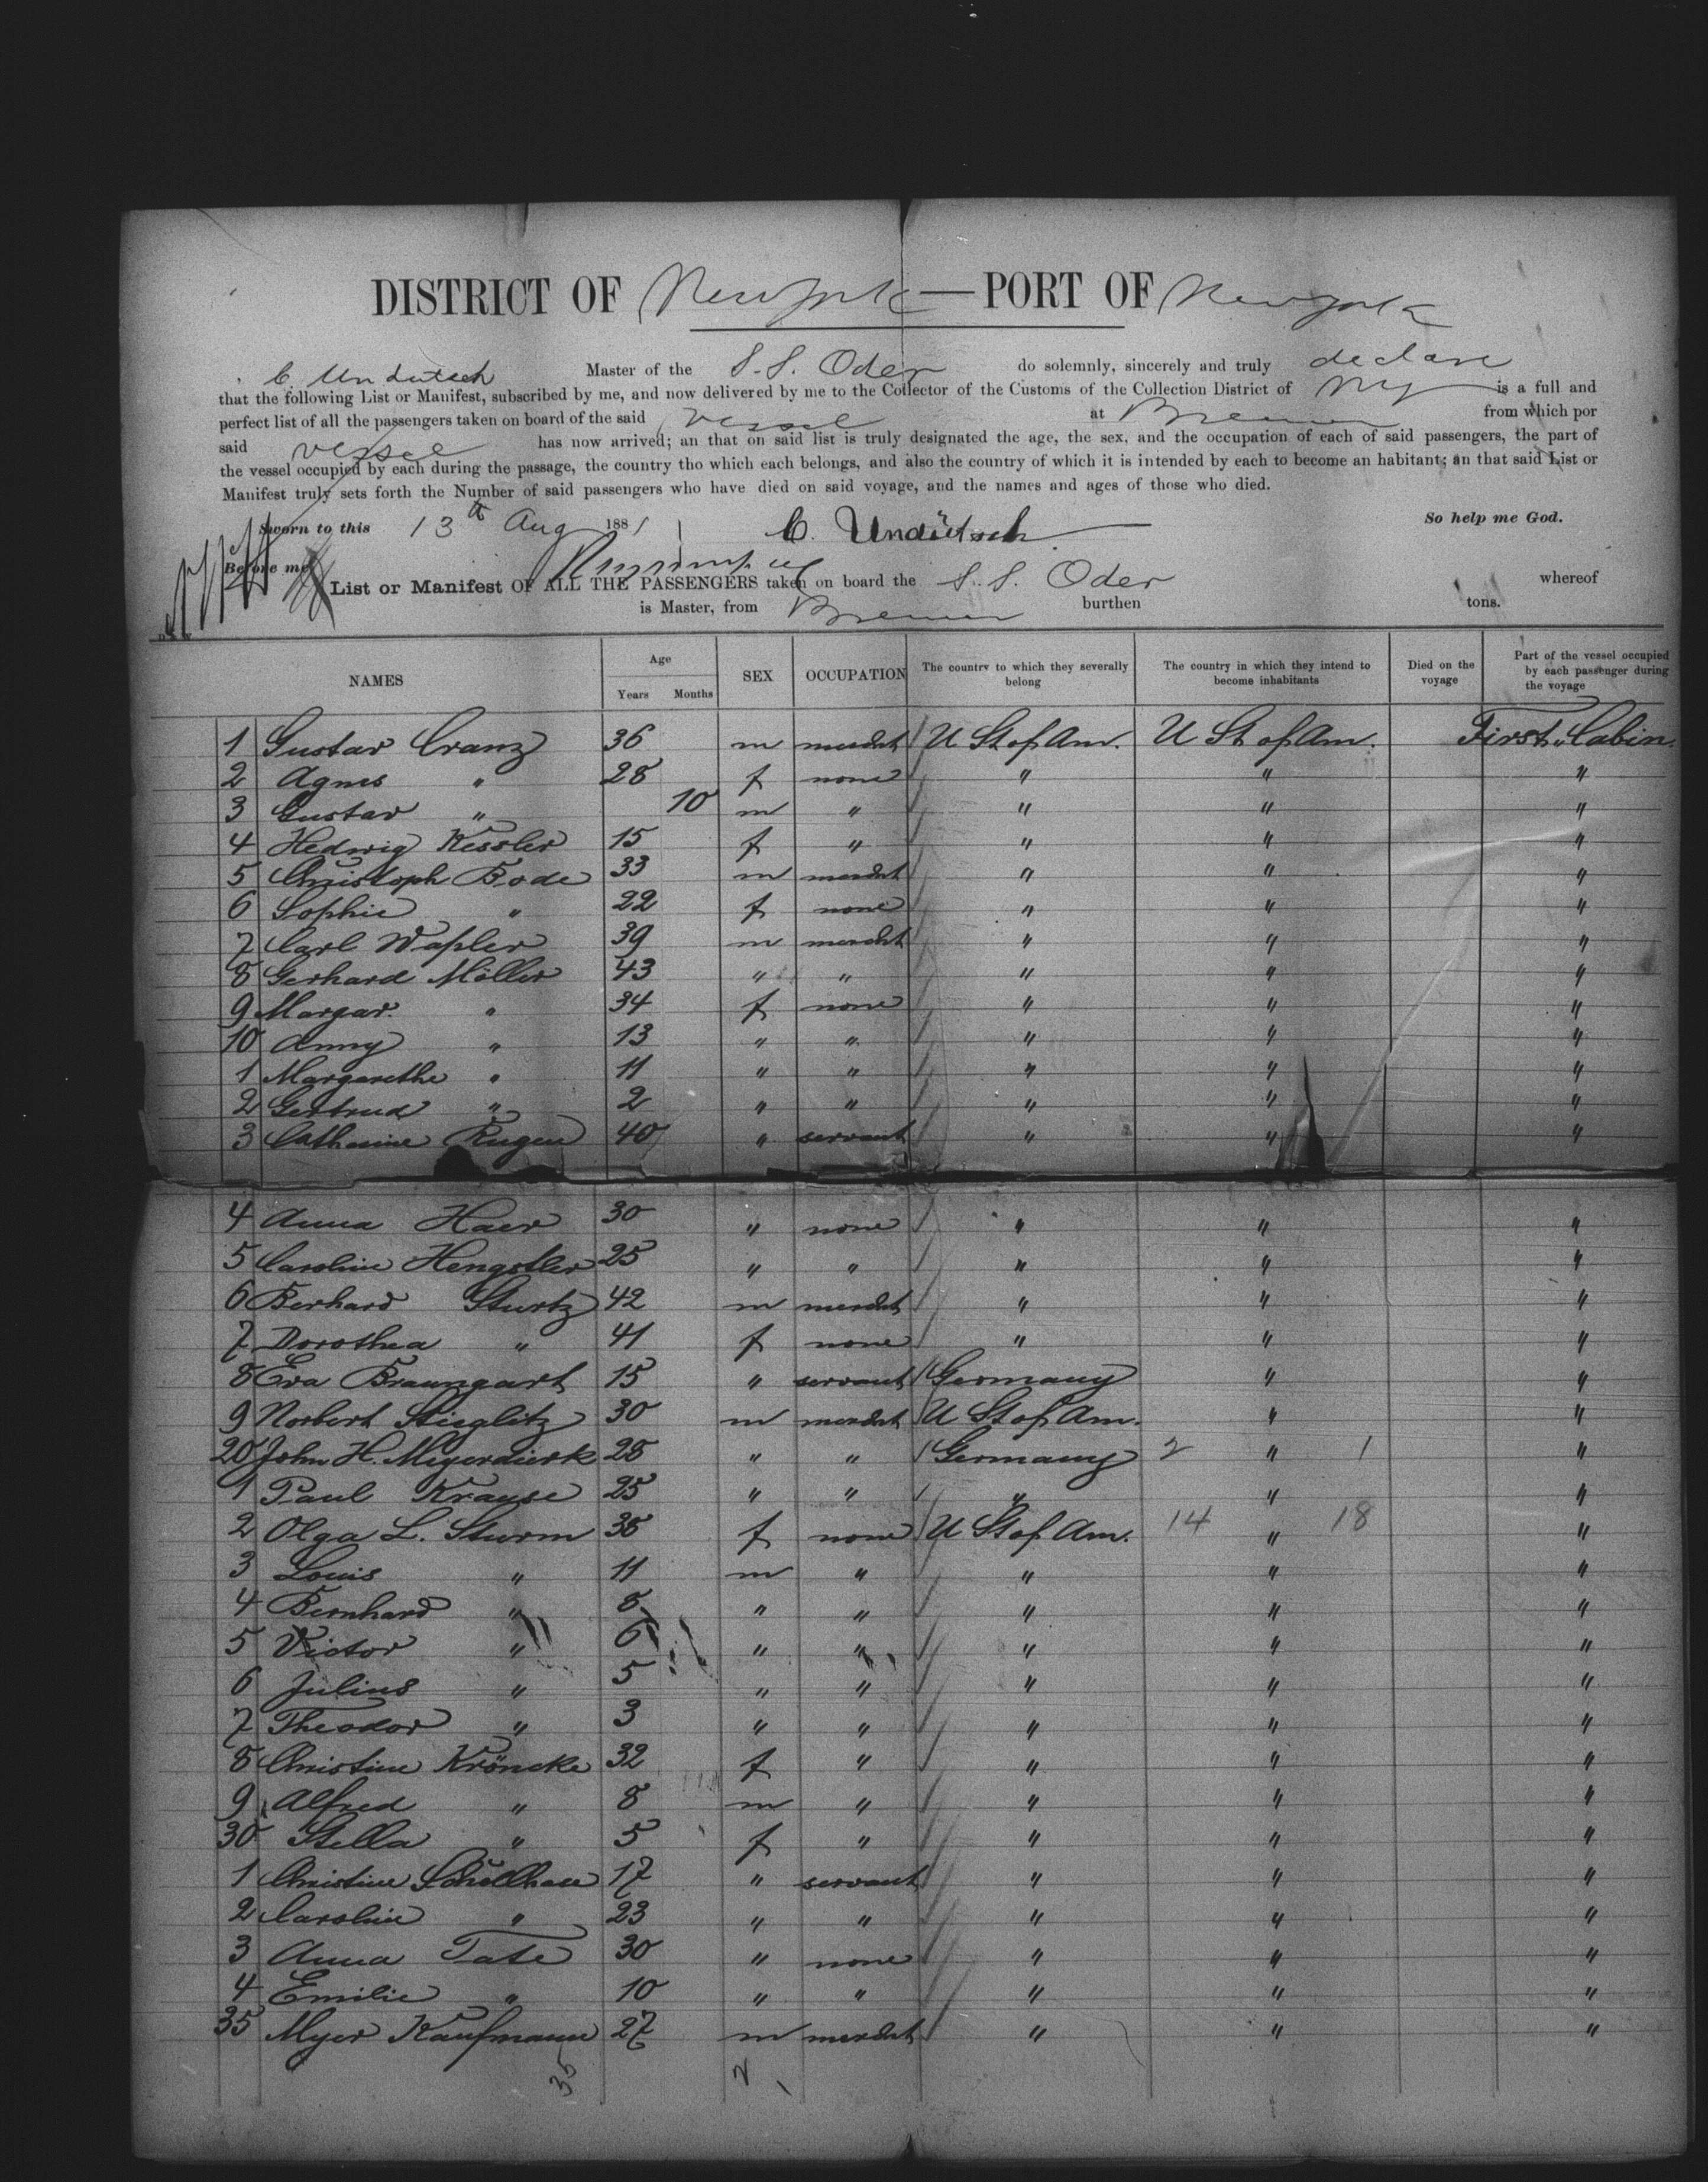 DISTRICT OF New York — PORT OF New York
C. Undutsch Master of the S. S. Oder do solemnly, sincerely and truly declare
that the following List or Manifest, subscribed by me, and now delivered by me to the Collector of the Customs of the Collection District of NY is a full and
perfect list of all the passengers taken on board of the said vessel at Bremen from which por
said vessel has now arrived; an that on said list is truly designated the age, the sex, and the occupation of each of said passengers, the part of
the vessel occupied by each during the passage, the country tho which each belongs, and also the country of which it is intended by each to become an habitant; an that said List or
Manifest truly sets forth the Number of said passengers who have died on said voyage, and the names and ages of those who died.
Sworn to this 13th Aug 1881 C. Undütsch So help me God.
Before me
List or Manifest OF ALL THE PASSENGERS taken on board the S. S. Oder whereof
is Master, from Bremen burthen tons.
NAMES Age Years Months SEX OCCUPATION The country to which they severally belong The country in which they intend to become inhabitants Died on the voyage Part of the vessel occupied by each passenger during the voyage
1 Gustav Cranz 36 m mercht U St of Am. U St of Am. First Cabin
2 Agnes " 28 f none " " "
3 Gustav " 10 m " " " "
4 Hedwig Kessler 15 f " " " "
5 Christoph Bode 33 m mercht " " "
6 Sophie " 22 f none " " "
7 Carl Wapler 39 m mercht " " "
8 Gerhard Möller 43 " " " " "
9 Margar. " 34 f none " " "
10 Anny " 13 " " " " "
1 Margarethe " 11 " " " " "
2 Gertrud " 2 " " " " "
3 Catharine Rugen 40 " servant " " "
4 Anna Haer 30 " none " " "
5 Caroline Hengstler 25 " " " " "
6 Berhard Sturtz 42 m mercht " " "
7 Dorothea " 41 f none " " "
8 Eva Braungart 15 " servant Germany " "
9 Norbert Stieglitz 30 m mercht U St of Am. " "
20 John H. Meyerdierk 28 " " Germany 2 " 1 "
1 Paul Krause 25 " " " " "
2 Olga L. Sturm 35 f none U St of Am. 14 " 18 "
3 Louis " 11 m " " " "
4 Bernhard " 8 " " " " "
5 Victor " 6 " " " " "
6 Julius " 5 " " " " "
7 Theodor " 3 " " " " "
8 Christine Kröncke 32 f " " " "
9 Alfred " 8 m " " " "
30 Stella " 5 f " " " "
1 Christine Schellhase 17 " servant " " "
2 Caroline " 23 " " " " "
3 Anna Tate 30 " none " " "
4 Emilie " 10 " " " " "
35 Myer Kaufmann 27 m mercht " " "
35 2 1